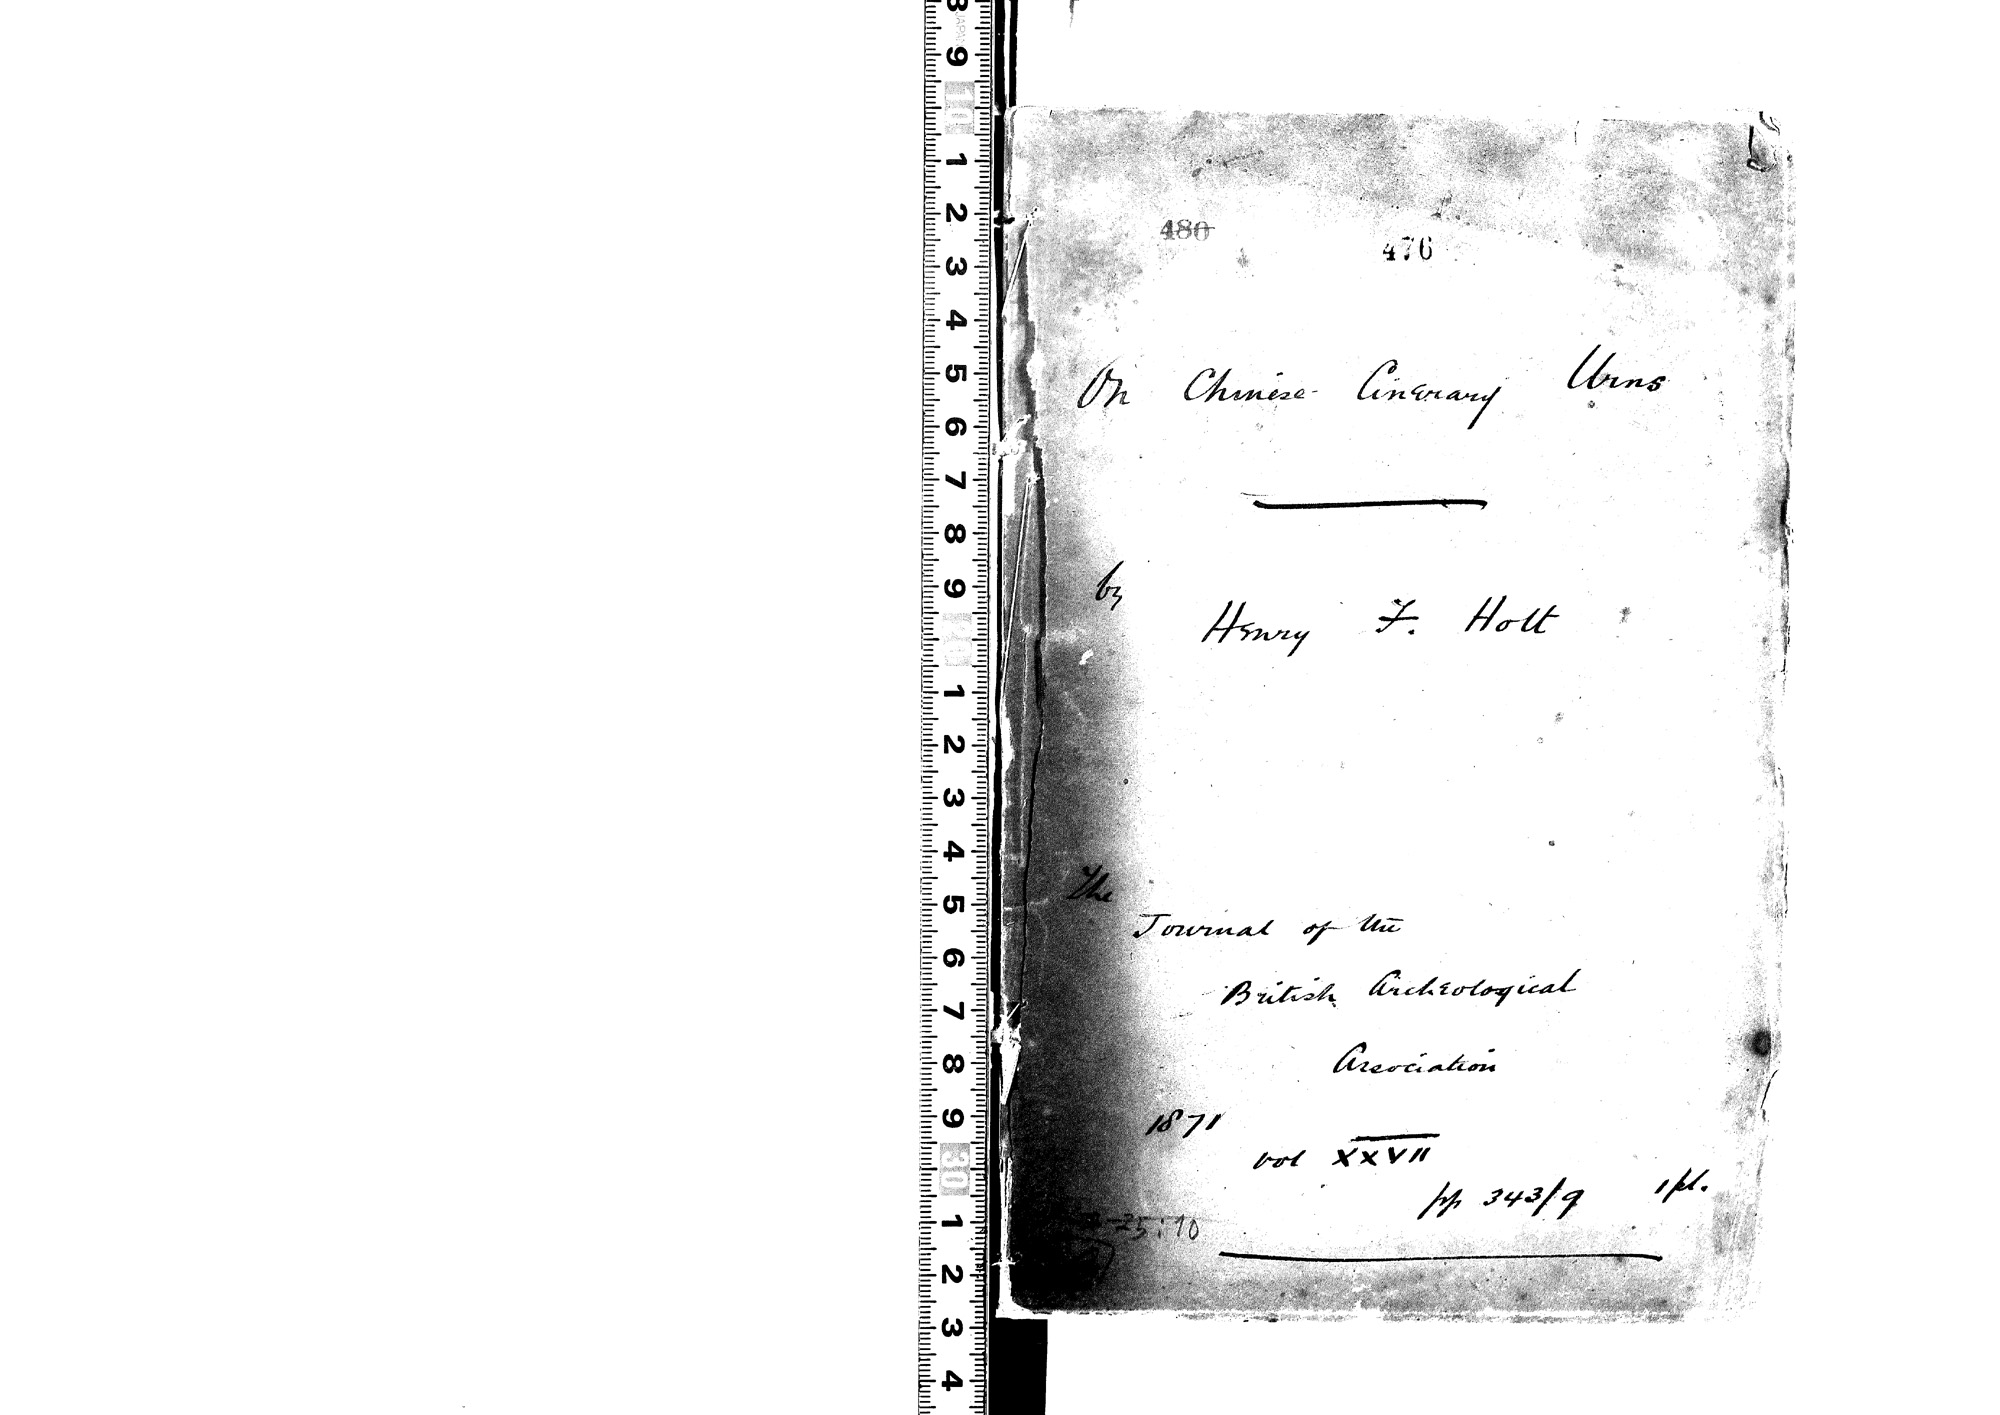 480
476
On Chinese Cinerary Urns
by
Henry F. Holt
The
Journal of the
British Archeological
Association
1871
vol XXVII
pp 343/9 1 pl.
25:10
JAPAN
8 9 10 1 2 3 4 5 6 7 8 9 20 1 2 3 4 5 6 7 8 9 30 1 2 3 4